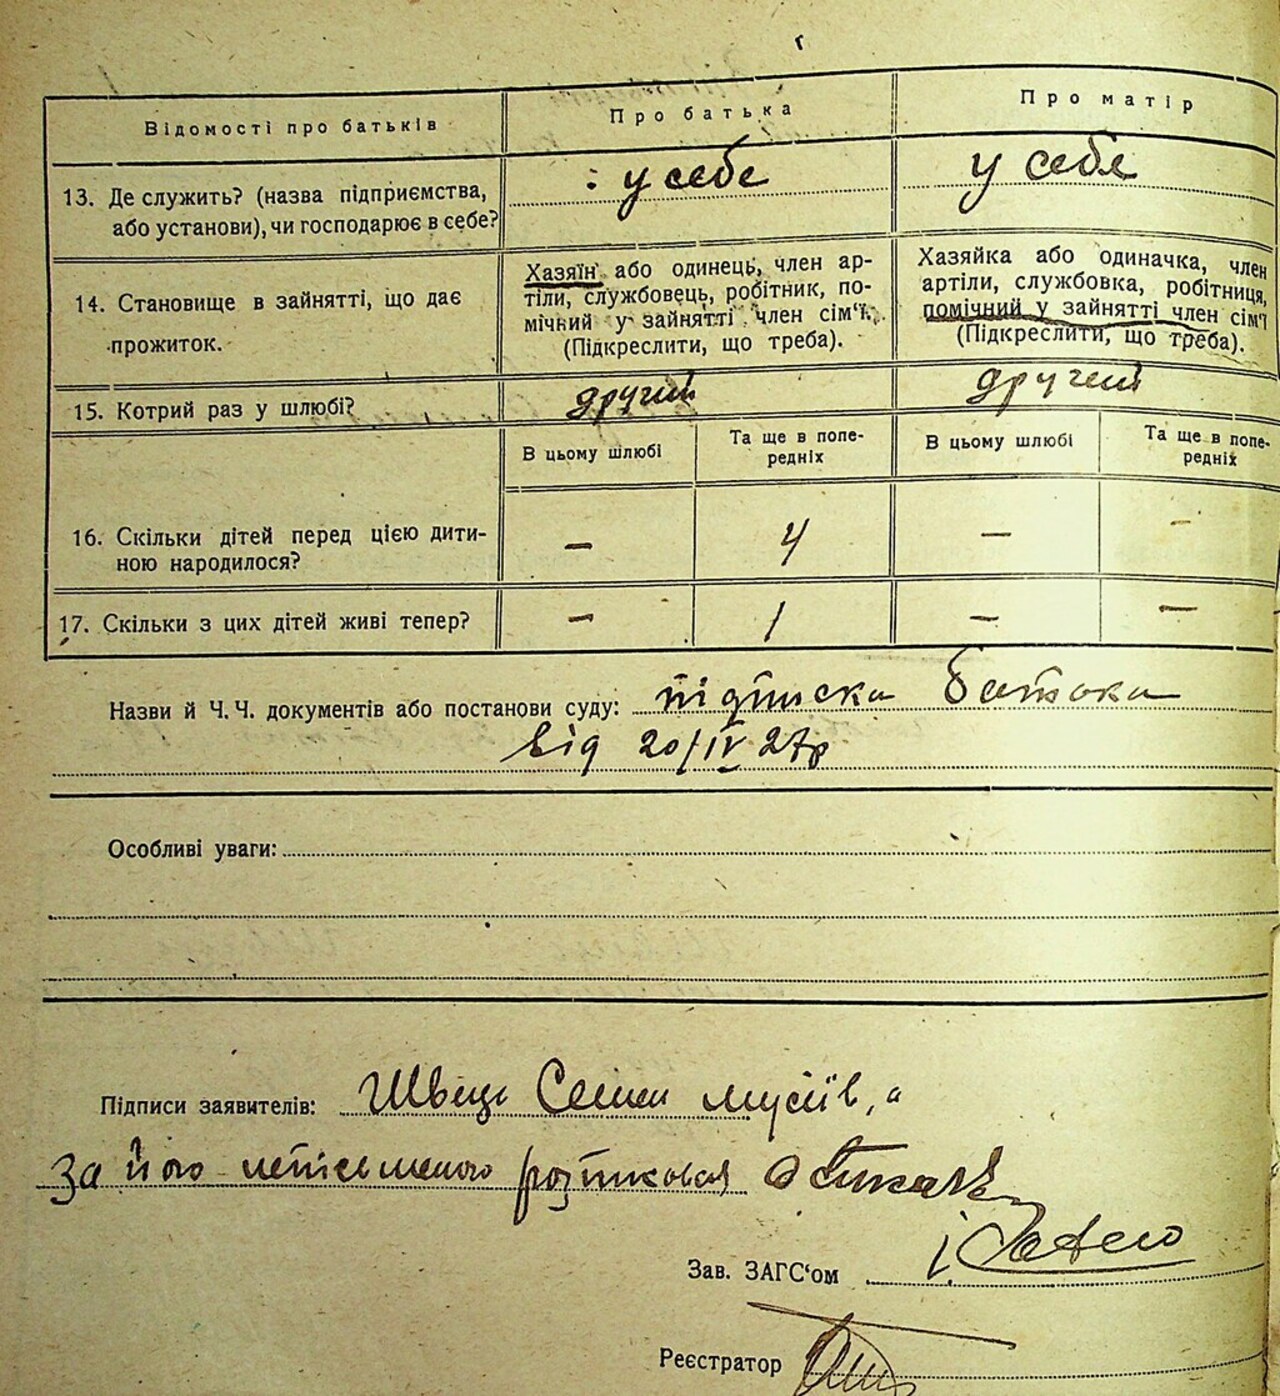 Відомості про батьків
Про батька
Про матір
13. Де служить? (назва підприємства,
або установи), чи господарює в себе?
: у себе
у себе
14. Становище в зайнятті, що дає
прожиток.
Хазяїн або одинець, член ар-
тіли, службовець, робітник, по-
мічний у зайнятті член сім'ї.
(Підкреслити, що треба).
Хазяйка або одиначка, член
артіли, службовка, робітниця,
помічний у зайнятті член сім'ї
(Підкреслити, що треба).
15. Котрий раз у шлюбі?
другий
другий
В цьому шлюбі
Та ще в попе-
редніх
В цьому шлюбі
Та ще в попе-
редніх
16. Скільки дітей перед цією дити-
ною народилося?
– 4 – –
17. Скільки з цих дітей живі тепер?
– 1 – –
Назви й Ч. Ч. документів або постанови суду: підписка батька
від 20/IV 27р
Особливі уваги:
Підписи заявителів: Швець Семен Мусіїв, а
за його неписьменого розписовся
Зав. ЗАГС'ом
Реєстратор